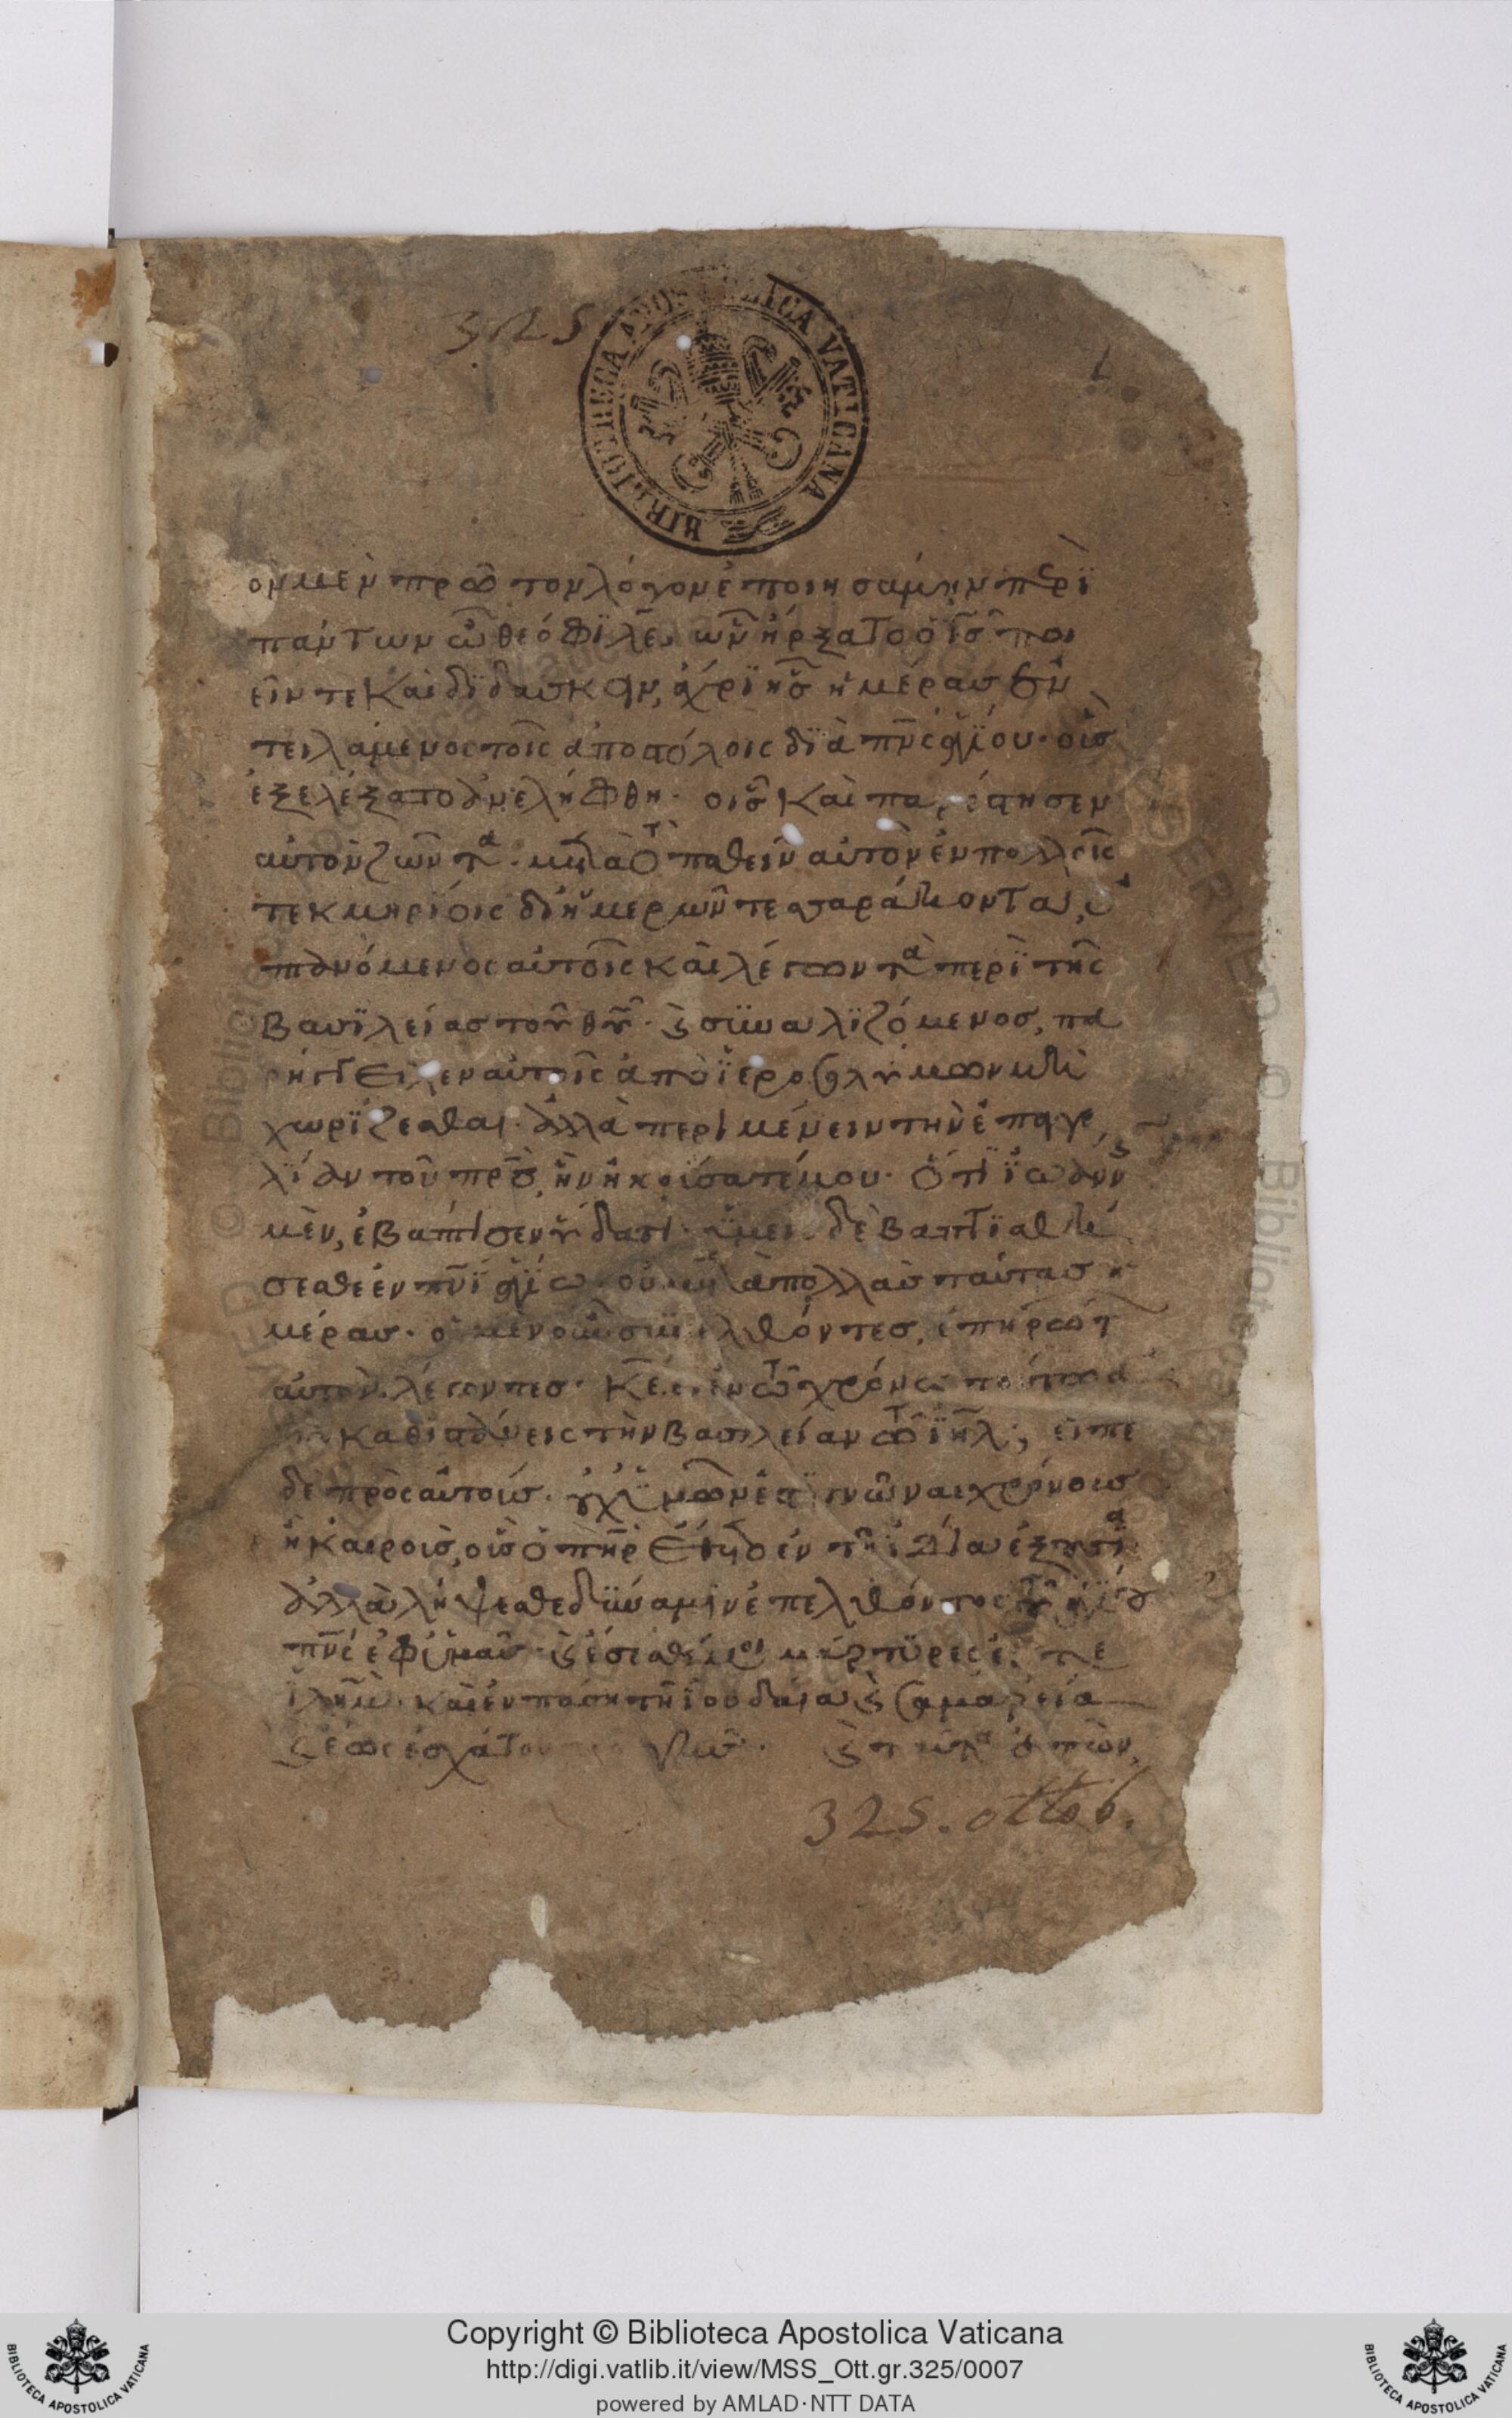 325
BIBLIOTHECA APOSTOLICA VATICANA
1
ὸν μὲν πρῶτον λόγον ἐποιησάμην περὶ
πάντων ὦ θεόφιλε, ὧν ἤρξατο ὁ ἰσ ποι
εῖν τε καὶ διδάσκειν, ἄχρι ἧσ ἡμέρασ ἐν
τειλάμενος τοῖς ἀποστόλοις διὰ πνς ἁγίου· οὓσ
ἐξελέξατο ἀνελήφθη· οἷσ καὶ παρέστησεν
αὐτὸν ζῶντα· μετὰ τὸ παθεῖν αὐτὸν ἐν πολλοῖς
τεκμηρίοις δι ἡμερῶν τεσσαράκοντα, ὀ
πτανόμενος αὐτοῖς καὶ λέγων τὰ περὶ τῆς
βασιλείασ τοῦ θυ· ϗ συναλιζόμενοσ, πα
ρήγγειλεν αὐτοῖς ἀπὸ ἱεροσολύμων μὴ
χωρίζεσθαι· ἀλλὰ περιμένειν τὴν ἐπαγγε
λίαν τοῦ πρσ, ἣν ἠκούσατέ μου· ὅτι ἰωάννησ
μὲν, ἐβάπτισεν ὕδατι· ὑμεῖς δὲ βαπτισθή
σεσθε ἐν πνι ἁγίω· οὐ μετὰ πολλὰσ ταύτασ ἡ
μέρασ· οἱ μὲν οὖν συνελθόντεσ, ἐπηρώτ
αὐτὸν λέγοντεσ· κε εἰ ἐν τῶ χρόνω τούτω ἀ
καθιστάνεις τὴν βασιλείαν τῶ ιηλ; εἶπε
δὲ πρὸς αὐτούσ· οὐχ ὑμῶν ἐστι γνῶναι χρόνουσ
ἢ καιρούσ, οὓσ ὁ πηρ ἔθετο ἐν τῆ ἰδία ἐξουσία
ἀλλὰ λήψεσθε δύναμιν ἐπελθόντος τοῦ ἁγίου
πνς ἐφ ὑμᾶσ· ϗ ἔσεσθέ μοι μάρτυρες ἔν τε
ιλημ· καὶ ἐν πάση τῆ ἰουδαία ϗ σαμαρεία
ϗ ἕως ἐσχάτου
325. ottob.
Copyright © Biblioteca Apostolica Vaticana
http://digi.vatlib.it/view/MSS_Ott.gr.325/0007
powered by AMLAD·NTT DATA
BIBLIOTECA APOSTOLICA VATICANA
BIBLIOTECA APOSTOLICA VATICANA